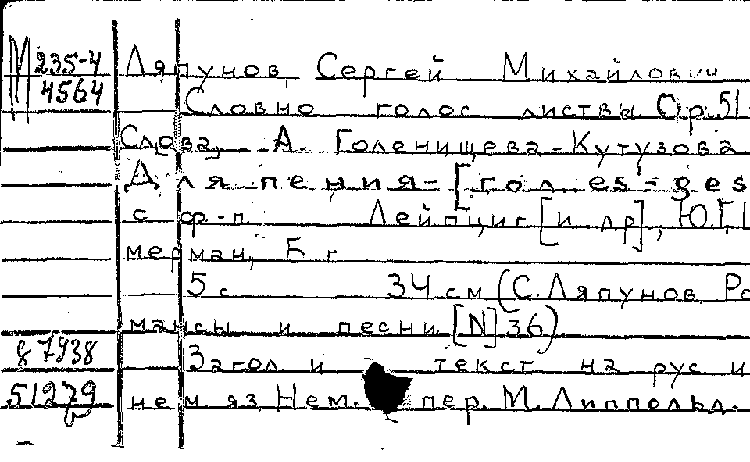 М 235-4 Ляпунов Сергей Михайлович
4564 Словно голос листвы Op. 51
Слова А. Голенищева-Кутузова
Для пения- [гол. es'-ges
с ф-п Лейпциг [и др], Ю.Г.
мерман, Б г
5 с 34 см (С. Ляпунов Ро
мансы и песни [N] 36)
g 7938 Загол и текст на рус и
51279 нем яз Нем. пер. М. Липпольд.